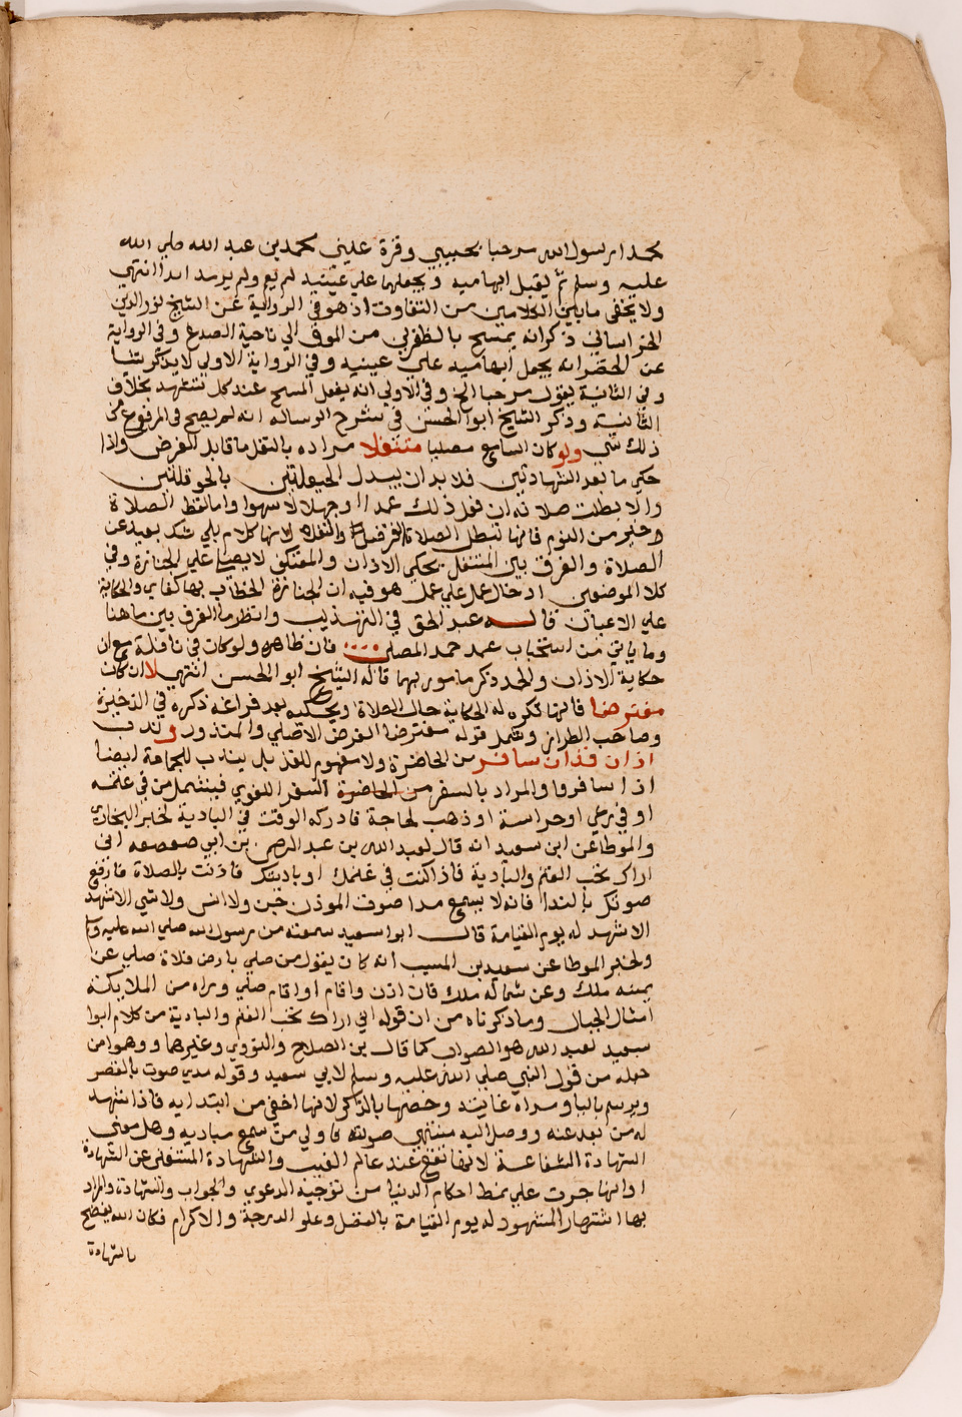 محمدا رسول الله مرحبا بحبيبي وقرة عليني محمد بن عبد الله صلي الله
عليه وسلم ثم يقبل ابهاميه ويجعلهما علي عينيه لم يعم ولم يرمد ابدا انتهي
ولا يخفي ما بين الكلامين من التفاوت اذ هو في الرواية عن الشيخ نور الدين
الخراساني ذكر انه يمسح بالظفرين من الموق الي ناحية الصدغ وفي الرواية
عن الخضر انه يجعل ابهاميه علي عينيه وفي الرواية الاولي لا يذكر شيا
وفي الثانية يقول مرحبا الخ وفي الاولي انه يفعل المسح عند كل تشهد بخلاف
الثانية وذكر الشيخ ابو الحسن في شرح الرسالة انه لم يصح في المرفوع من
ذلك شي ولو كان السامع مصليا متنفلا مراده بالنفل ما قابل الفرض واذا
حكي ما بعد الشهادتين فلا بد ان يبدل الحيعلتين بالحوقلتين
والا بطلت صلاته ان فعل ذلك عمدا او جهلا لا سهوا واما لفظ الصلاة
وخير من النوم فانها تبطل الصلاة الفرض والنفل لانها كلام بلي شك بعيد عن
الصلاة والفرق بين المتنفل يحكي الاذان والمعتكف لا يصلي علي الجنازة وفي
كلا الموضعين ادخال عمل علي عمل هو فيه ان الجنازة الخطاب بها كفاي والحكاية
علي الاعيان قاله عبد الحق في التهذيب وانظر ما الفرق بين ما هنا
وما ياتي من استحباب عمد حمد المصلي فان ظاهره ولو كان في نافلة مع ان
حكاية الاذان والحمد ذكر مامور بهما قاله الشيخ ابو الحسن انتهي لا ان كان
مفترضا فانها تكره له الحكاية حال الصلاة ويحكيه بعد فراغه ذكره في الذخيرة
وصاحب الطراز وشمل قوله مفترضا الفرض الاصلي والمنذور وندب
اذان فذ ان سافر من الحاضرة ولا مفهوم للفذ بل يندب للجماعة ايضا
اذا سافروا والمراد بالسفر من الحاضرة السفر اللغوي فيشمل من في غنمه
او في رعي او حراسة او ذهب لحاجة فادركه الوقت في البادية لخبر البخاري
والموطا عن ابي سعيد انه قال لعبد الله بن عبد الرحمن بن ابي صعصعه اني
اراك تحب الغنم والبادية فاذا كنت في غنمك او باديتك فاذنت بالصلاة فارفع
صوتك بالندا فانه لا يسمع مدا صوت الموذن جن ولا انس ولا شي الا شهد
الا شهد له يوم القيامة قال ابو سعيد سمعته من رسول الله صلي الله عليه وسلم
ولخبر الموطا عن سعيد بن المسيب انه كان يقول من صلي بارض فلاة صلي عن
يمينه ملك وعن شماله ملك فان اذن واقام او اقام صلي وراه من الملايكة
امثال الجبال وما ذكرناه من ان قوله اني اراك تحب الغنم والبادية من كلام ابوا
سعيد لعبد الله هو الصواب كما قال بن الصلاح والنووي وغيرهما ووهوا من
جعله من قول النبي صلي الله عليه وسلم لابي سعيد وقوله مدي صوت بالقصر
ويرسم باليا ومراه غايته وخصها بالذكر لانها اخفي من ابتدايه فاذا شهد
له من بعد عنه ووصل اليه منتهي صوته فاولي من سمع مباديه وهل معني
الشهادة الشفاعة لانها تقع عند عالم الغيب والشهادة المستغني عن الشهادة
او انها جرت علي نمط احكام الدنيا من توجيه الدعوي والجواب والشهادة والمراد
بها اشتهار المشهود له يوم القيامة بالفضل وعلو الدرجة والاكرام فكان الله يفضح
بالشهادة